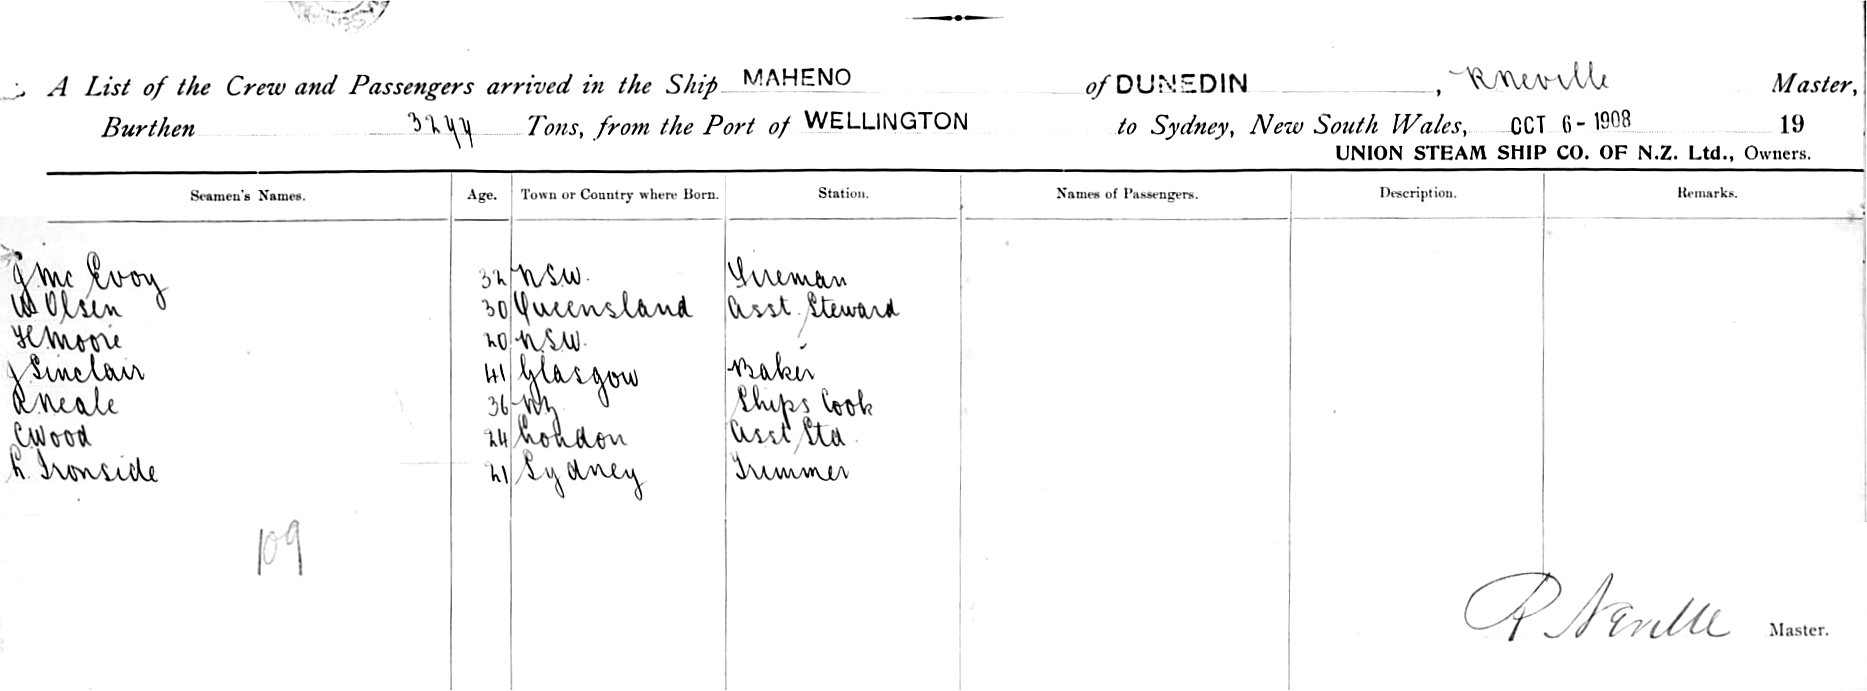 A List of the Crew and Passengers arrived in the Ship MAHENO of DUNEDIN, R Neville Master,
Burthen 3244 Tons, from the Port of WELLINGTON to Sydney, New South Wales, OCT 6 - 1908 19
UNION STEAM SHIP CO. OF N.Z. Ltd., Owners.
Seamen's Names. Age. Town or Country where Born. Station. Names of Passengers. Description. Remarks.
J Mc Evoy 32 N.S.W. Fireman
W Olsen 30 Queensland Asst. Steward
H Moore 20 N.S.W. "
J Sinclair 41 Glasgow Baker
R Neale 36 NZ Ships Cook
C Wood 24 London Asst Std
L. Ironside 21 Sydney Trimmer
109
R Neville Master.